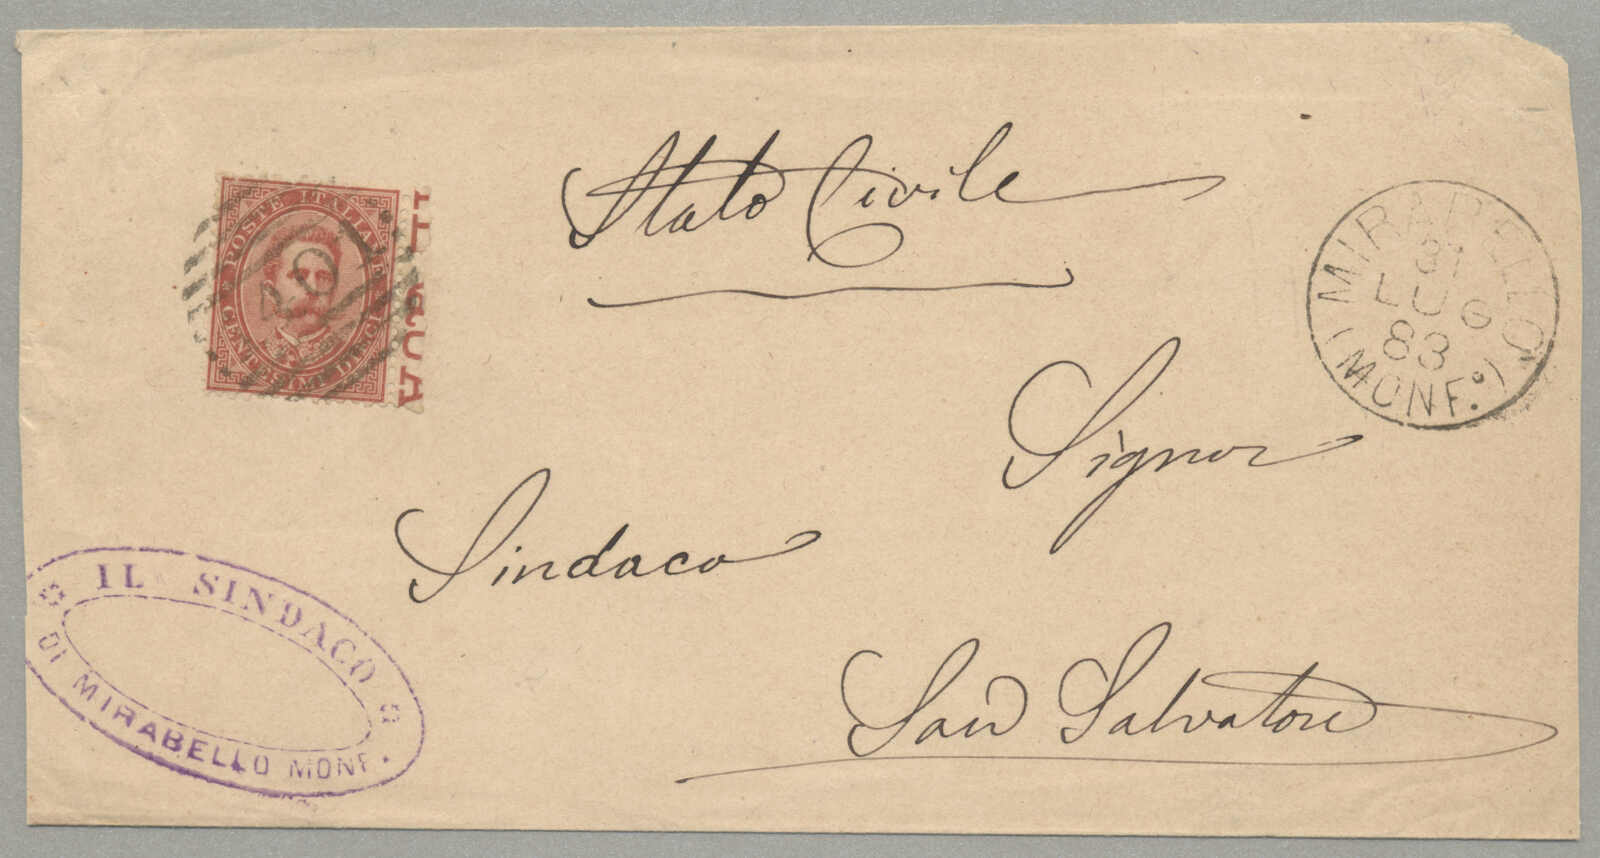 Stato Civile
POSTE ITALIANE
CENTESIMI DIECI
MIRABELLO
31
LUG
83
(MONF.º)
Signor
Sindaco
San Salvatore
IL SINDACO
DI MIRABELLO MONF.